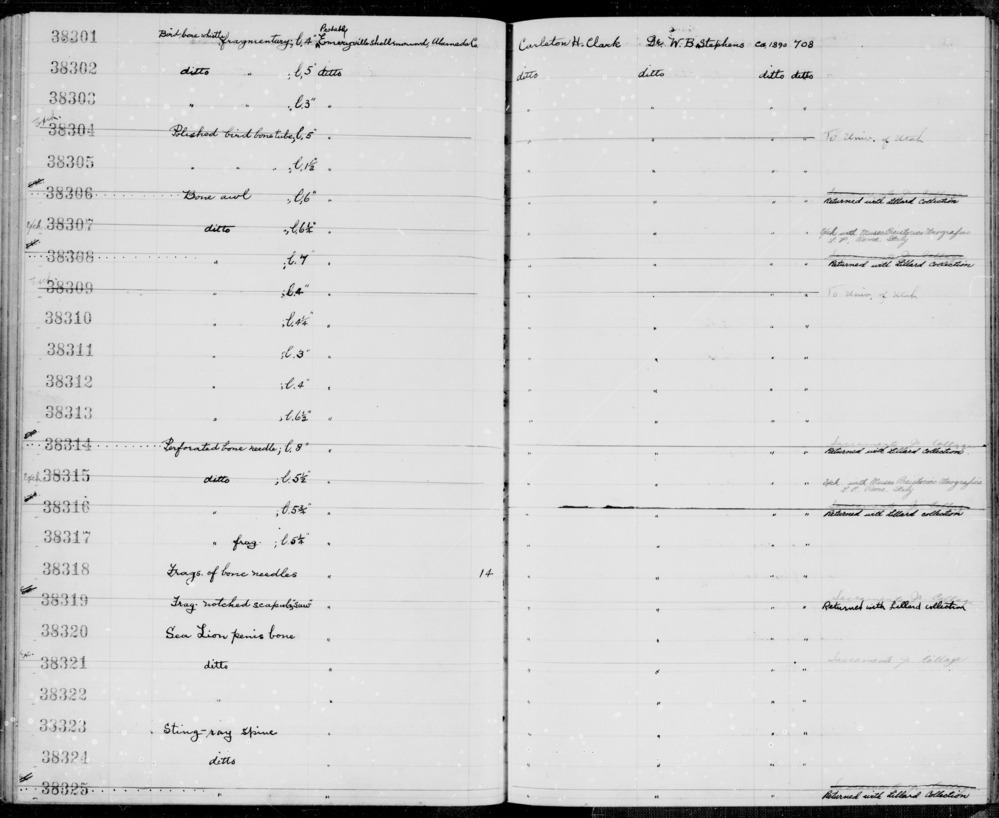 38301 Bird bone whistle, fragmentary; l. 4" Probably Emeryville shellmound, Alameda Co. Carleton H. Clark Dr. W. B. Stephens ca. 1890 708
38302 ditto " ; l. 5" ditto ditto ditto ditto ditto
38303 " " ; l. 3" " " " " "
38304 Polished bird bone tube; l. 5" " " " " " To Univ. of Utah
38305 " " " " ; l. 1½" " " " " "
38306 Bone awl ; l. 6" " " " " " Returned with Lillard collection
exch. 38307 ditto ; l. 6½" " " " " " Exch. with Museo Preistorico Etnografico
L. P., Rome, Italy
38308 " ; l. 7" " " " " " Returned with Lillard Collection
38309 " ; l. 4" " " " " " To Univ. of Utah
38310 " ; l. 4¼" " " " " "
38311 " ; l. 3" " " " " "
38312 " ; l. 4" " " " " "
38313 " ; l. 6½" " " " " "
38314 Perforated bone needle; l. 8" " " " " " Returned with Lillard Collection
exch. 38315 ditto ; l. 5½" " " " " " Exch. with Museo Preistorico Etnografico
L. P. Rome, Italy
38316 " ; l. 5¾" " " " " " Returned with Lillard collection
38317 " frag. ; l. 5¼" " " " " "
38318 Frags. of bone needles " 14 " " " "
38319 Frag. notched scapula "saw" " " " " " Returned with Lillard collection
38320 Sea Lion penis bone " " " " "
38321 ditto " " " " " Sacramento Jr. College
38322 " " " " " "
38323 Sting-ray spine " " " " "
38324 ditto " " " " "
38325 " " " " " " Returned with Lillard Collection